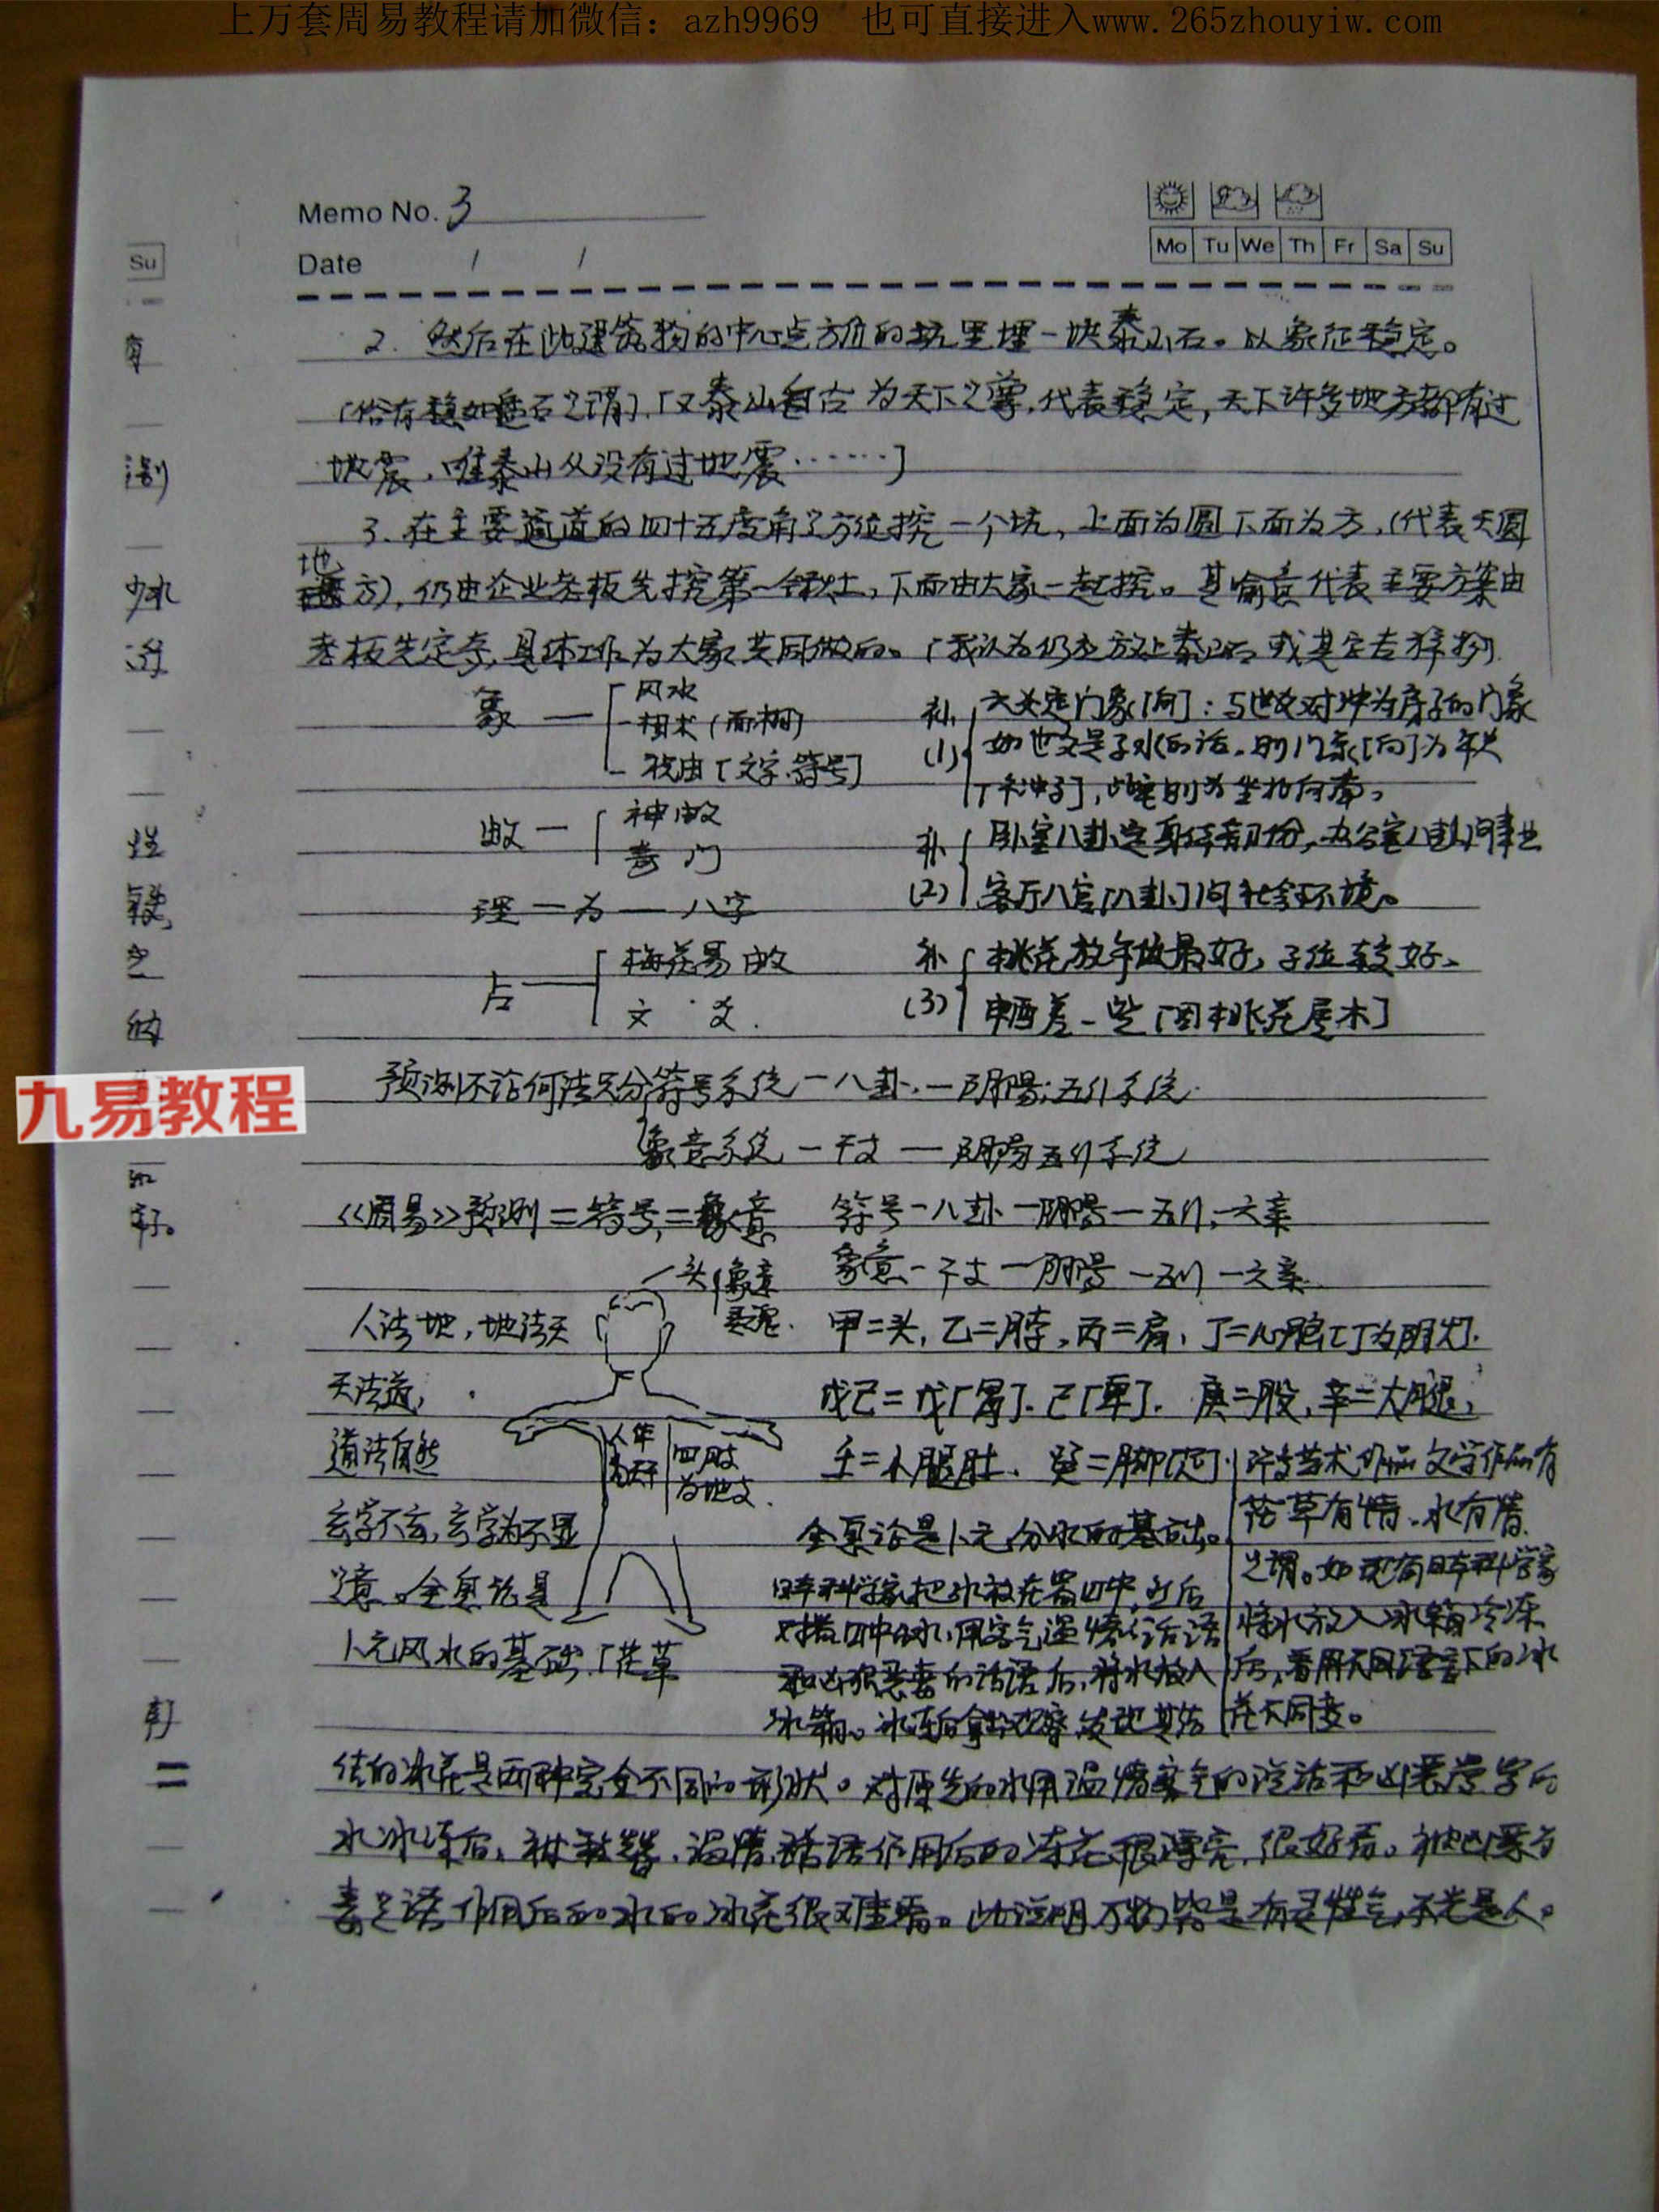 上万套周易教程请加微信: azh9969 也可直接进入www.265zhouyiw.com
Memo No. 3
Mo Tu We Th Fr Sa Su
Date / /
Su
2. 然后在此建筑物的中心点方位的坑里埋一块泰山石。以象征稳定。
(俗有稳如磐石之谓).「又泰山自古为天下之尊,代表稳定,天下许多地方都有过
地震,唯泰山从没有过地震……」
3. 在主要通道的四十五度角之方位挖一个坑,上面为圆下面为方,(代表天圆
地方),仍由企业老板先挖第一锹土,下面由大家一起挖。其喻意代表主要方案由
老板先定夺,具体工作为大家共同做的。「我认为仍应放上泰山石或其它吉祥物」
象 — 风水
相术(面相)
祝由「文字.符号」
数 — 神数
奇门
理 — 为 — 八字
占 — 梅花易数
六爻.
补(1) 六爻定门象「向」:与世爻对冲为房子的门象
如世爻是子水的话,则门象「向」为午火
「午冲子」,此宅则为坐北向南。
补(2) 卧室八卦定身体部份,办公室八卦问事业
客厅八宫「八卦」问社会环境。
补(3) 桃花放午位最好,子位较好、
申酉差一些「因桃花属木」
预测不论何法只分符号系统一八卦.一阴阳;五行系统.
象意系统一干支一阴阳五行系统
《周易》预测=符号,=象意
符号一八卦一阴阳一五行,一六亲
象意一干支一阴阳一五行一六亲.
头 象意
灵魂.
人法地,地法天
天法道,
道法自然
人体为天干
四肢为地支.
甲=头,乙=脖,丙=肩,丁=心脏「丁为明灯.
戊己=戊「胃」.己「 」. 庚=股,辛=大腿,
壬=小腿肚、癸=脚
许多艺术作品文学作品有
花草有情.水有情.
之谓。如现有日本科学家
将水放入冰箱冷冻
后,看用不同语言下的冰
花大不同变。
玄学不玄,玄学为不显
之意。全息论是
风水的基础.「花草
全息论是 的基础。
日本科学家把水放在器皿中,之后
对器皿中的水,用客气温情的话语
和凶狠恶毒的话语后,将水放入
冰箱。冰冻后拿出观察,发现其结
结的冰花是两种完全不同的形状。对原先的水用温情客气的说话和凶恶
水冰冻后, 温情话语作用后的冻花很漂亮,很好看。被凶恶
毒之语作用后的水的冰花很难看。此说明万物皆是有灵性,不光是人。
九易教程